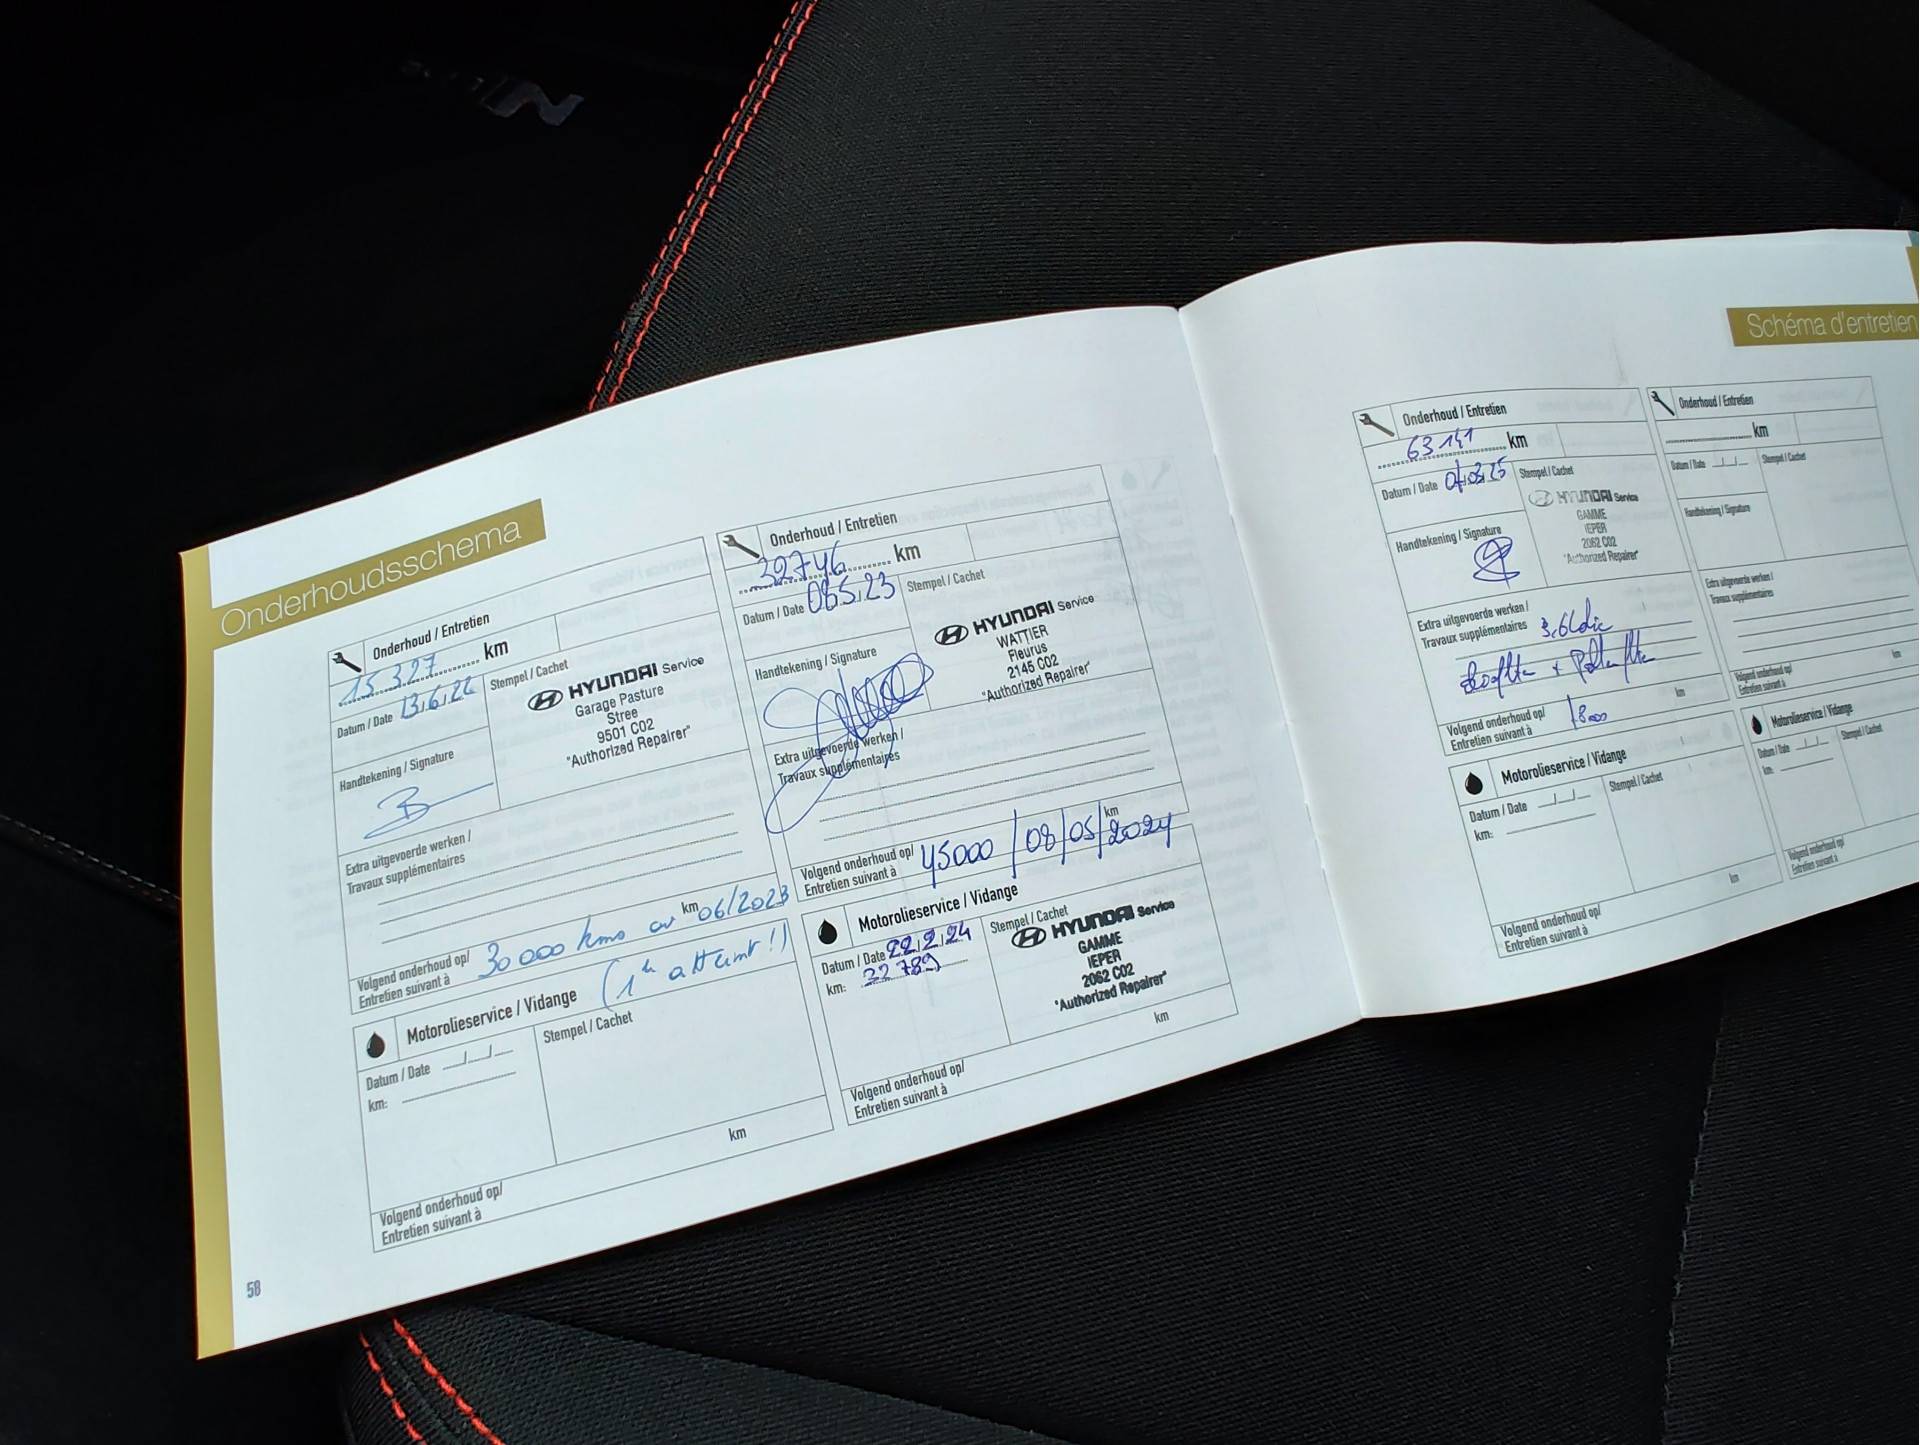 N Line
Onderhoudsschema
Onderhoud / Entretien
15 327 km
Datum / Date 13,6,22
Stempel / Cachet
HYUNDAI Service
Garage Pasture
Stree
9501 C02
"Authorized Repairer"
Handtekening / Signature
Extra uitgevoerde werken /
Travaux supplémentaires
km
Volgend onderhoud op/
Entretien suivant à
30 000 kms ou 06/2023
(1er atteint !)
Motorolieservice / Vidange
Datum / Date
km:
Stempel / Cachet
km
Volgend onderhoud op/
Entretien suivant à
58
Onderhoud / Entretien
32746 km
Datum / Date
Stempel / Cachet
HYUNDAI Service
WATTIER
Fleurus
2145 C02
"Authorized Repairer"
Handtekening / Signature
Extra uitgevoerde werken /
Travaux supplémentaires
km
Volgend onderhoud op/
Entretien suivant à
45000 / 08/05/2024
Motorolieservice / Vidange
Datum / Date 22,2,24
km:
Stempel / Cachet
HYUNDAI Service
GAMME
IEPER
2062 C02
"Authorized Repairer"
km
Volgend onderhoud op/
Entretien suivant à
Schéma d'entretien
Onderhoud / Entretien
63141 km
Datum / Date
Stempel / Cachet
HYUNDAI Service
GAMME
IEPER
2062 C02
"Authorized Repairer"
Handtekening / Signature
Extra uitgevoerde werken /
Travaux supplémentaires
km
Volgend onderhoud op/
Entretien suivant à
Motorolieservice / Vidange
Datum / Date
km:
Stempel / Cachet
km
Volgend onderhoud op/
Entretien suivant à
Onderhoud / Entretien
km
Datum / Date
Stempel / Cachet
Handtekening / Signature
Extra uitgevoerde werken /
Travaux supplémentaires
km
Volgend onderhoud op/
Entretien suivant à
Motorolieservice / Vidange
Datum / Date
km:
Stempel / Cachet
Volgend onderhoud op/
Entretien suivant à